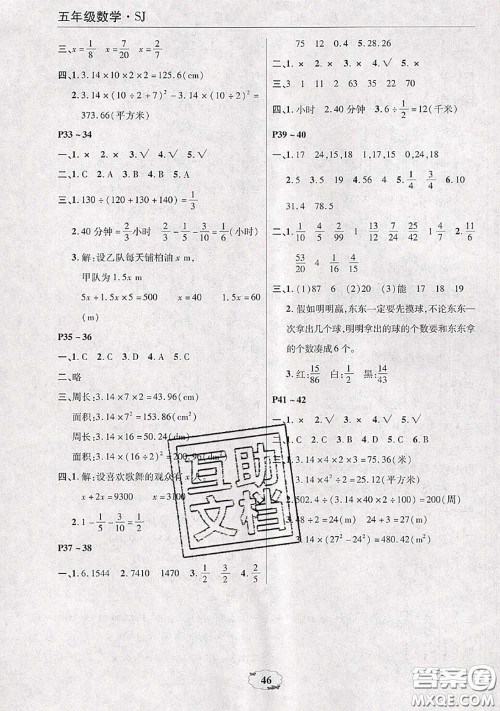 五年级数学·SJ
三、x=1/8 x=7/20 x=2/7
四、1. 3.14×10×2×2=125.6(cm)
2. 3.14×(10÷2+7)²-3.14×(10÷2)²=
373.66(平方米)
P33~34
一、1. × 2. × 3. √ 4. √ 5. √
二、1. C 2. C 3. B 4. D 5. A
三、1. 130÷(130+130+140)=1/3
2. 40分钟=2/3(小时) 2/3-3/10=1/6(小时)
3. 解:设乙队每天铺柏油x米,
甲队为1.5x m
5x+1.5x×5=500 x=40 1.5x=60
P35~36
一、1. C 2. D 3. A 4. D 5. C
二、略
三、周长:3.14×7×2=43.96(cm)
面积:3.14×7²=153.86(cm²)
周长:3.14×16=50.24(dm)
面积:3.14×(16÷2)²=200.96(dm²)
四、1. 解:设喜欢歌舞的观众有x人。
x+2x=9300 x=3100
2. 1-1/5-3/10=1/2
P37~38
一、1. 6.1544 2. 7410 1470 3. 1/2 3/2 4. 2/5
75 20 40 5. 28.26
二、1. × 2. √ 3. × 4. √
三、3 1 11 38 35 22 70
四、1. 小时 2. 40分钟 3. 6÷1/2=12(千米)
P39~40
一、1. 17 24,15,18 17,15 0,24,18
2. 5 3. 21 18
31.4 78.5
三、1. (1)87 6 (2)6 (3)能 17 18 19
2. 假如明明赢,东东一定要先摸球,不论东东一
次拿出几个球,明明拿出的球的个数要和东东拿
的个数凑成6个。
3. 红:15/86 白:1/2 黑:14/43
P41~42
×4=3.14×24=75.36(米)
÷1/4=25(平方米)
2. 502.4÷(3.14×40÷100)=400(周)
÷2=24(m) 24+3=27(m)
3.14×(27²-24²)=480.42(m²)
互助文档
46
答案圈
MXQE.COM